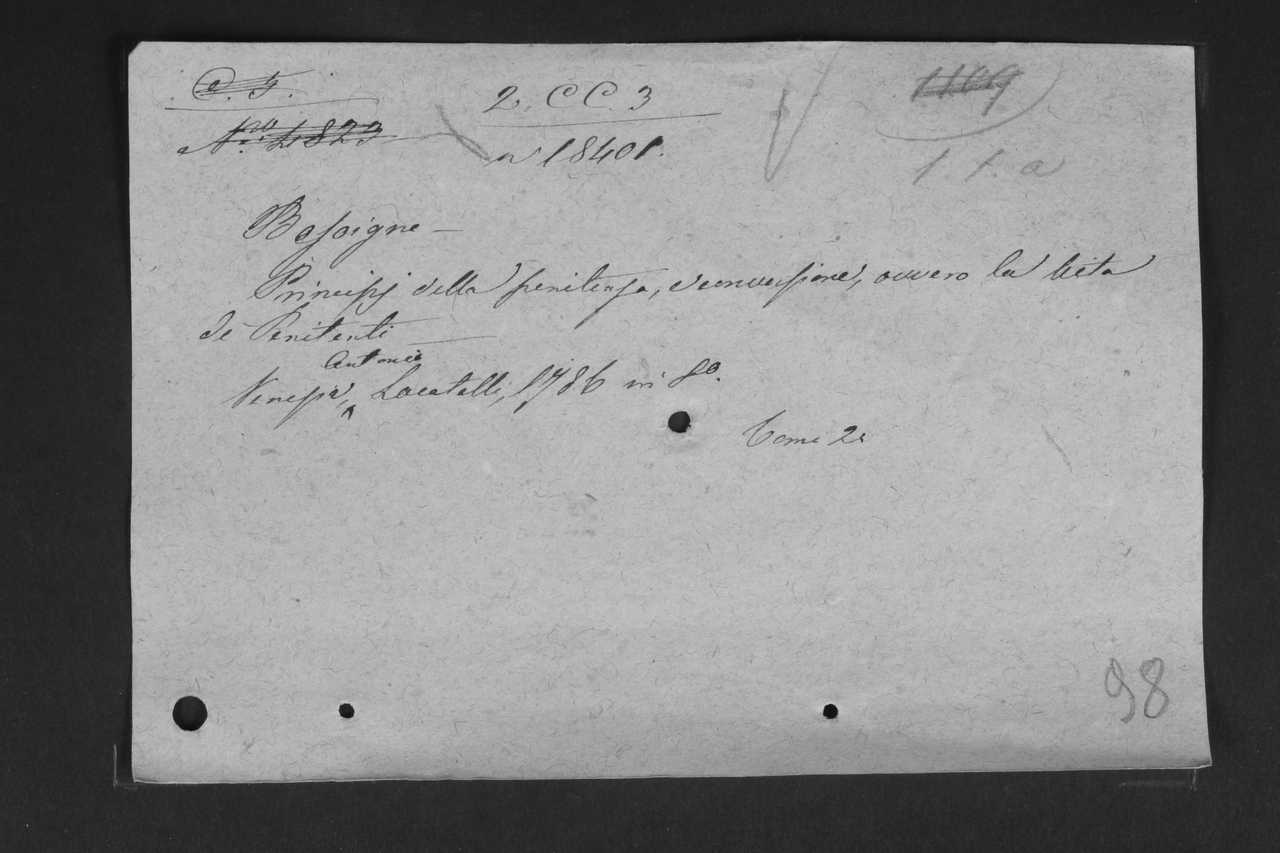 C. 5.
N.ro 4823
2. CC. 3
n 18401.
1109
1. 1. a
Bassoigne —
Principj della penitenza, e conversione, ovvero la Vita
de Penitenti —
Antonio
Venezia, Locatelli, 1786 in 8º.
Tomi 2.
98